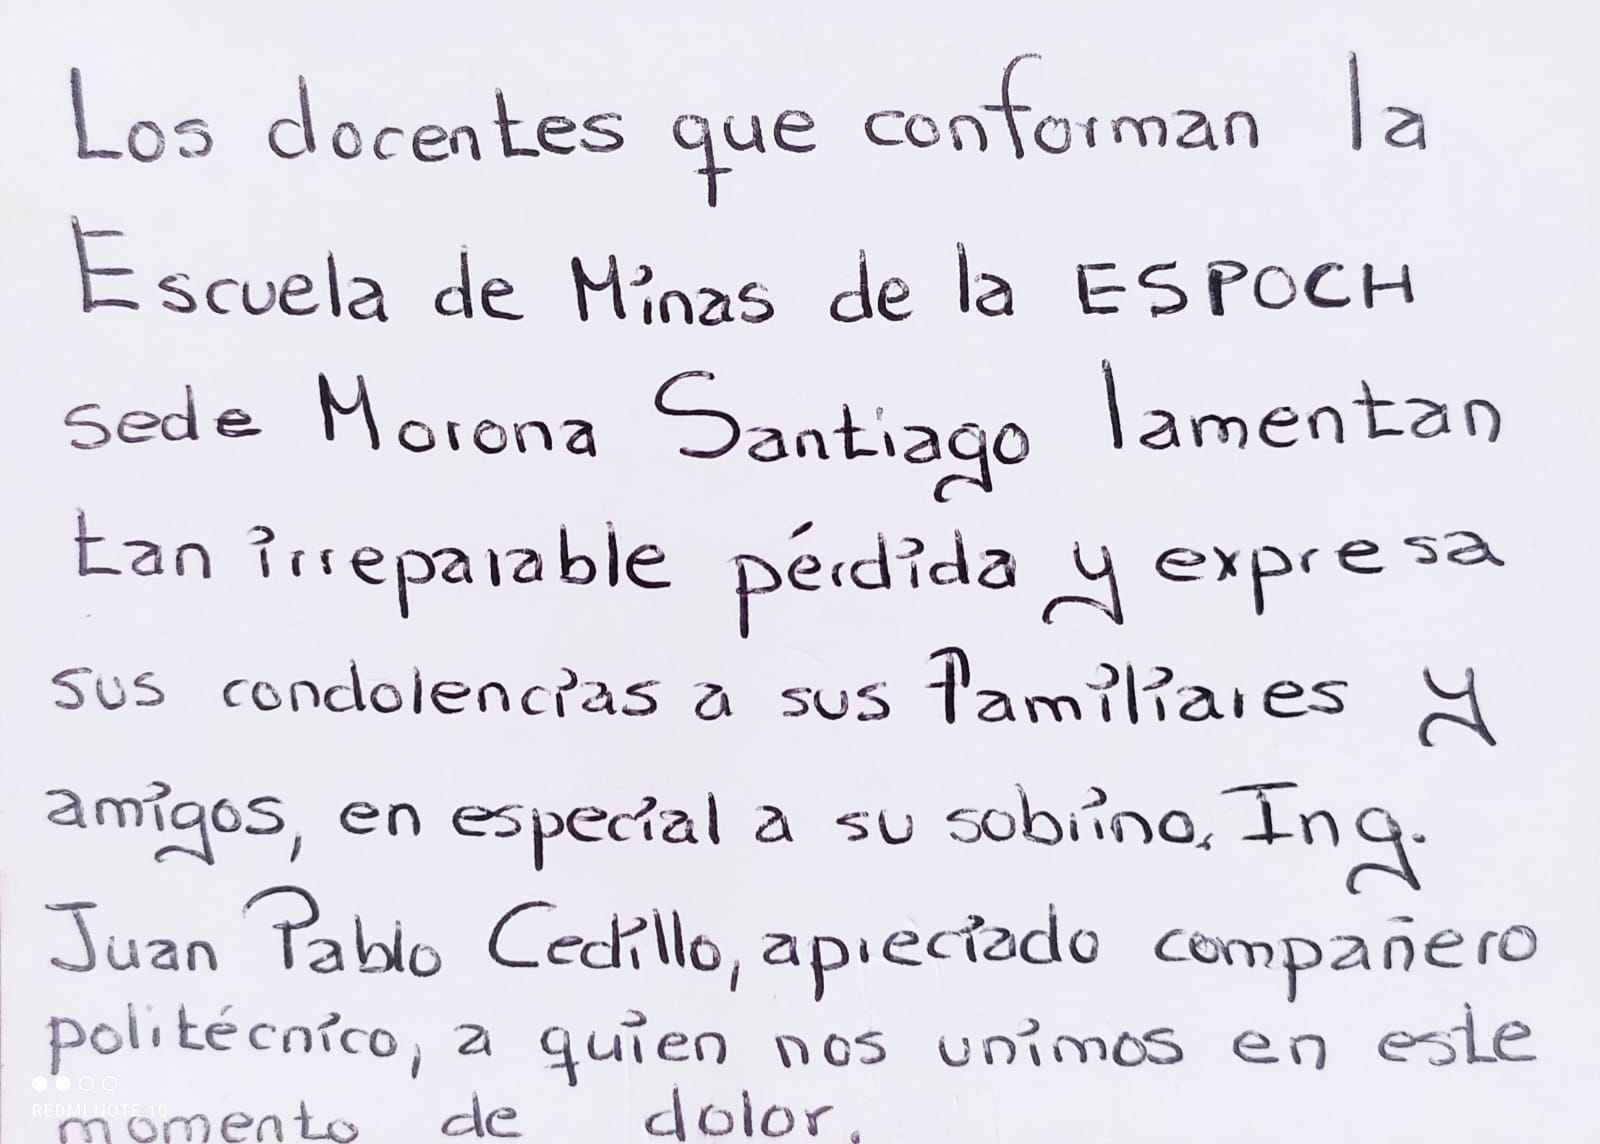 Los docentes que conforman la
Escuela de Minas de la ESPOCH
sede Morona Santiago lamentan
tan irreparable pérdida y expresa
sus condolencias a sus familiares y
amigos, en especial a su sobrino, Ing.
Juan Pablo Cedillo, apreciado compañero
politécnico, a quien nos unimos en este
momento de dolor.
REDMI NOTE 10